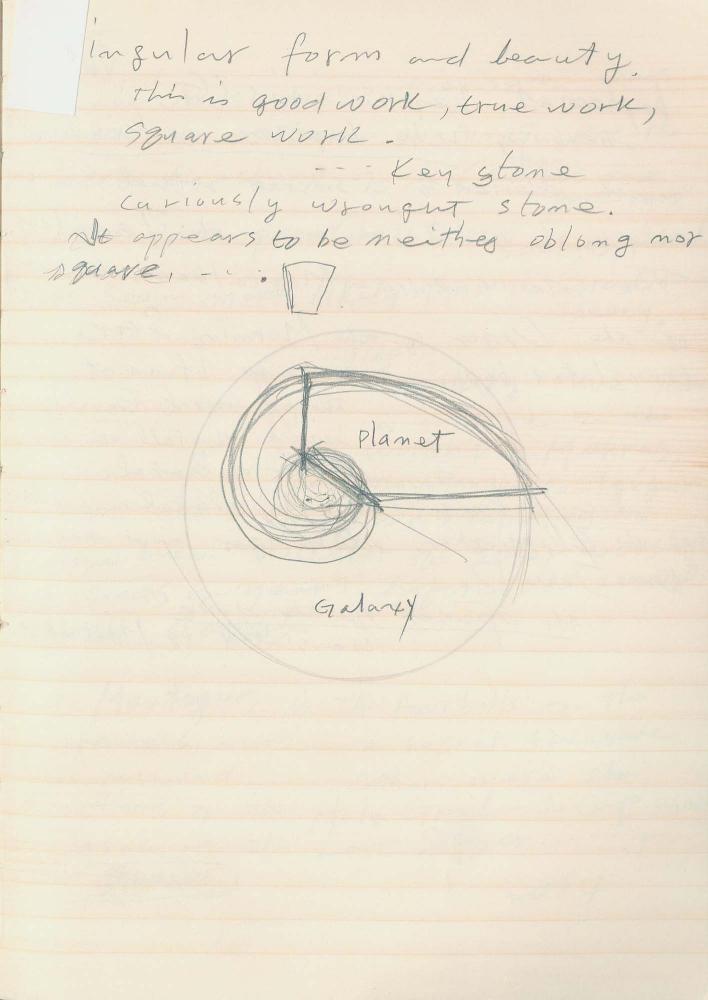 ingular form and beauty.
this is good work, true work,
square work.
--- Key stone
curiously wrought stone.
It appears to be neither oblong nor
square. - - . .
Planet
Galaxy